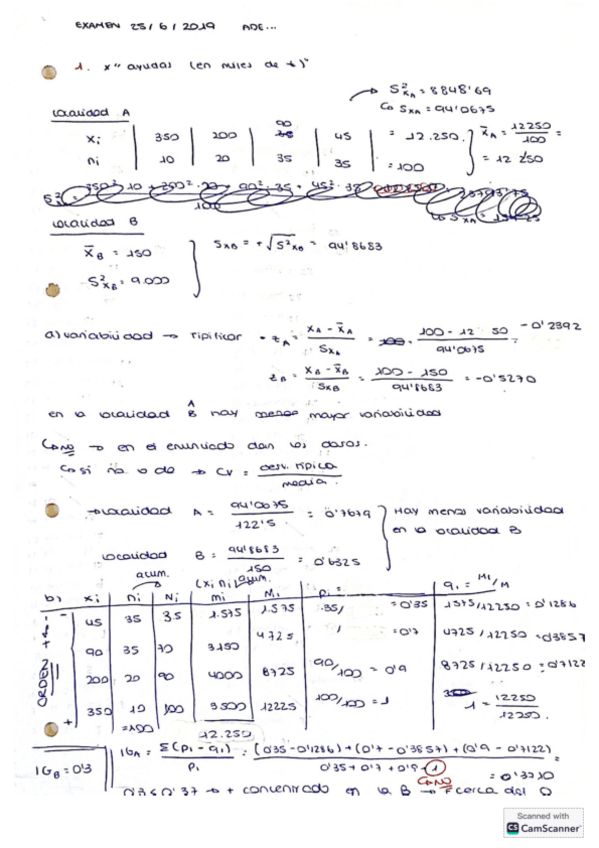 EXAMEN 25/6/2019 ADE...
1. x "ayudas (en miles de €)"
S²xA = 8848'69
SxA = 94'0675
Localidad A
90
xi | 350 | 200 | 45 | = 12.250
ni | 10 | 20 | 35 | 35 | = 100
x̄A = 12250/100 =
= 12 250
Localidad B
x̄B = 150
S²xB = 9.000
SxB = +√S²xB = 94'8683
a) variabilidad → tipificar • zA = xA - x̄A / SxA = 100 - 12 50 / 94'0675 = -0'2392
zB = xB - x̄B / SxB = 100 - 150 / 94'8683 = -0'5270
A
en la localidad B hay menos mayor variabilidad
NO → en el enunciado dan los datos.
si no lo da → CV = desv. típica / media.
→ Localidad A = 94'0675 / 122'5 = 0'7679
Localidad B = 94'8683 / 150 = 0'6325
Hay menos variabilidad
en la localidad B
acum. (xi ni) acum.
b) xi | ni | Ni | mi | Mi | pi = | qi = Mi/M
45 | 35 | 35 | 1.575 | 1.575 | 35/ = 0'35 | 1575/12250 = 0'1286
90 | 35 | 70 | 3.150 | 4725 | / = 0'7 | 4725/12250 = 0'3857
200 | 20 | 90 | 4000 | 8725 | 90/100 = 0'9 | 8725/12250 = 0'7122
350 | 10 | 100 | 3500 | 12225 | 100/100 = 1 | 1 = 12250/12250.
=100 12.250
ORDEN + -
IGB = 0'3
IGA = Σ(pi - qi) / pi = (0'35 - 0'1286) + (0'7 - 0'3857) + (0'9 - 0'7122) / 0'35 + 0'7 + 0'9 + 1 =
NO = 0'3710
0'3 < 0'37 → + concentrado en la B → + cerca del 0
Scanned with
CS CamScanner